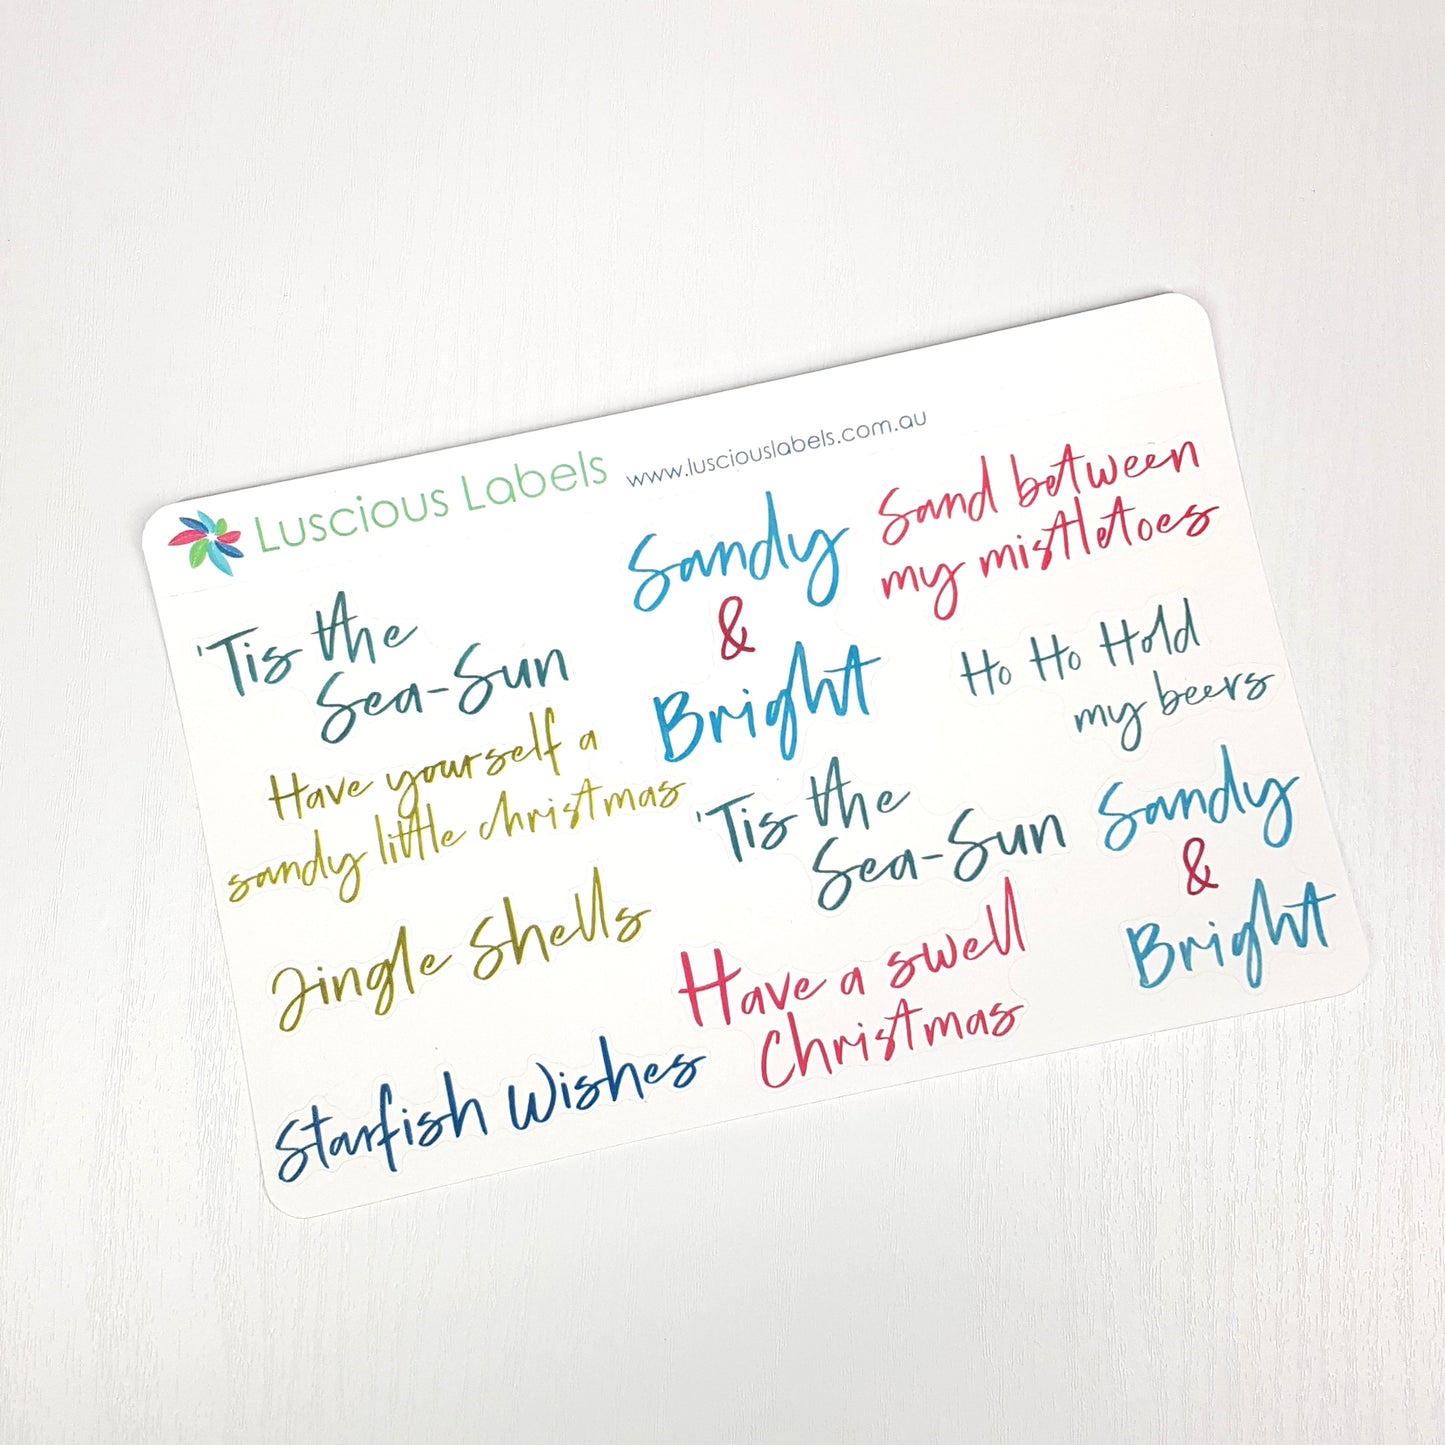 Luscious Labels www.lusciouslabels.com.au
'Tis the
Sea-Sun
Have yourself a
sandy little christmas
Jingle Shells
Starfish Wishes
Sandy
&
Bright
'Tis the
Sea-Sun
Have a swell
Christmas
Sand between
my mistletoes
Ho Ho Hold
my beers
Sandy
&
Bright